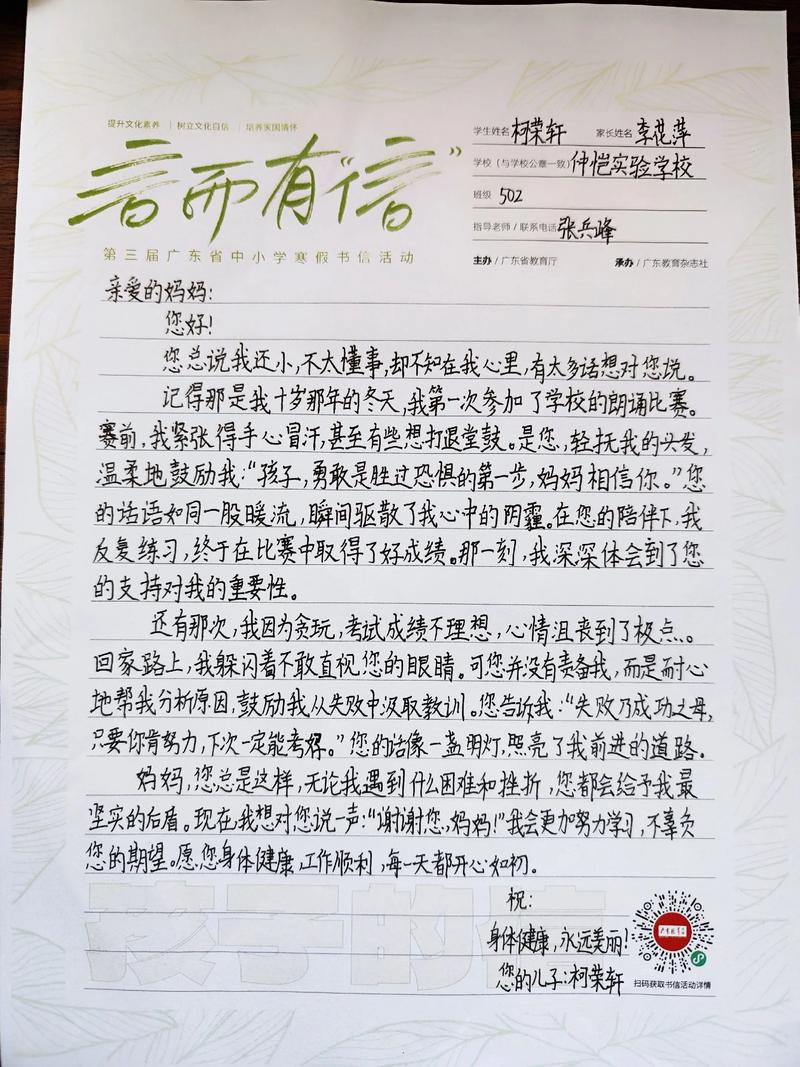 提升文化素养 | 树立文化自信 | 培养家国情怀
言而有“信”
第三届广东省中小学寒假书信活动
学生姓名 柯荣轩 家长姓名 李花萍
学校（与学校公章一致） 仲恺实验学校
班级 502
指导老师 / 联系电话 张兵峰
主办 / 广东省教育厅 承办 / 广东教育杂志社
亲爱的妈妈:
您好!
您总说我还小,不太懂事,却不知在我心里,有太多话想对您说。
记得那是我十岁那年的冬天,我第一次参加了学校的朗诵比赛。
赛前,我紧张得手心冒汗,甚至有些想打退堂鼓。是您,轻抚我的头发,
温柔地鼓励我:“孩子,勇敢是胜过恐惧的第一步,妈妈相信你。”您
的话语如同一股暖流,瞬间驱散了我心中的阴霾。在您的陪伴下,我
反复练习,终于在比赛中取得了好成绩。那一刻,我深深体会到了您
的支持对我的重要性。
还有那次,我因为贪玩,考试成绩不理想,心情沮丧到了极点。
回家路上,我躲闪着不敢直视您的眼睛。可您并没有责备我,而是耐心
地帮我分析原因,鼓励我从失败中汲取教训。您告诉我:“失败乃成功之母,
只要你肯努力,下次一定能考好。”您的话像一盏明灯,照亮了我前进的道路。
妈妈,您总是这样,无论我遇到什么困难和挫折,您都会给予我最
坚实的后盾。现在我想对您说一声:“谢谢您,妈妈!”我会更加努力学习,不辜负
您的期望。愿您身体健康,工作顺利,每一天都开心如初。
祝:
身体健康,永远美丽!
您的儿子:柯荣轩
孩子的信
广东教育
扫码获取书信活动详情